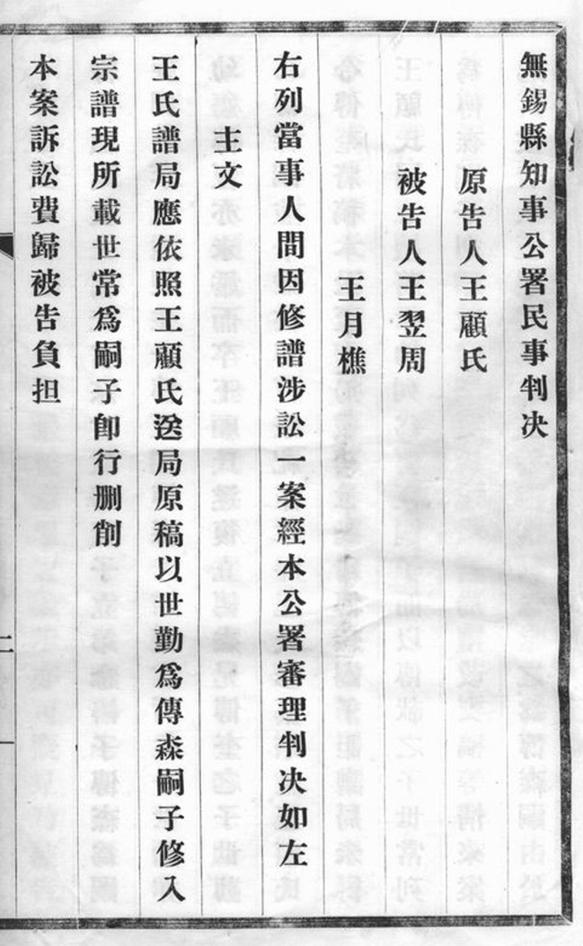 無錫縣知事公署民事判决
原告人王顧氏
被告人王翌周
王月樵
右列當事人間因修譜涉訟一案經本公署審理判决如左
主文
王氏譜局應依照王顧氏送局原稿以世勤爲傳森嗣子修入
宗譜現所載世常爲嗣子卽行删削
本案訴訟費歸被告負担